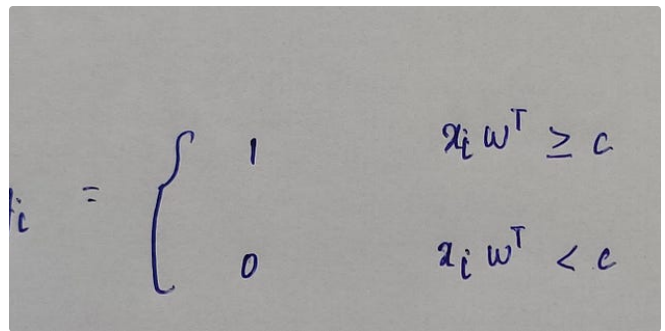 i = { 1 xᵢ wᵀ ≥ c
0 xᵢ wᵀ < c